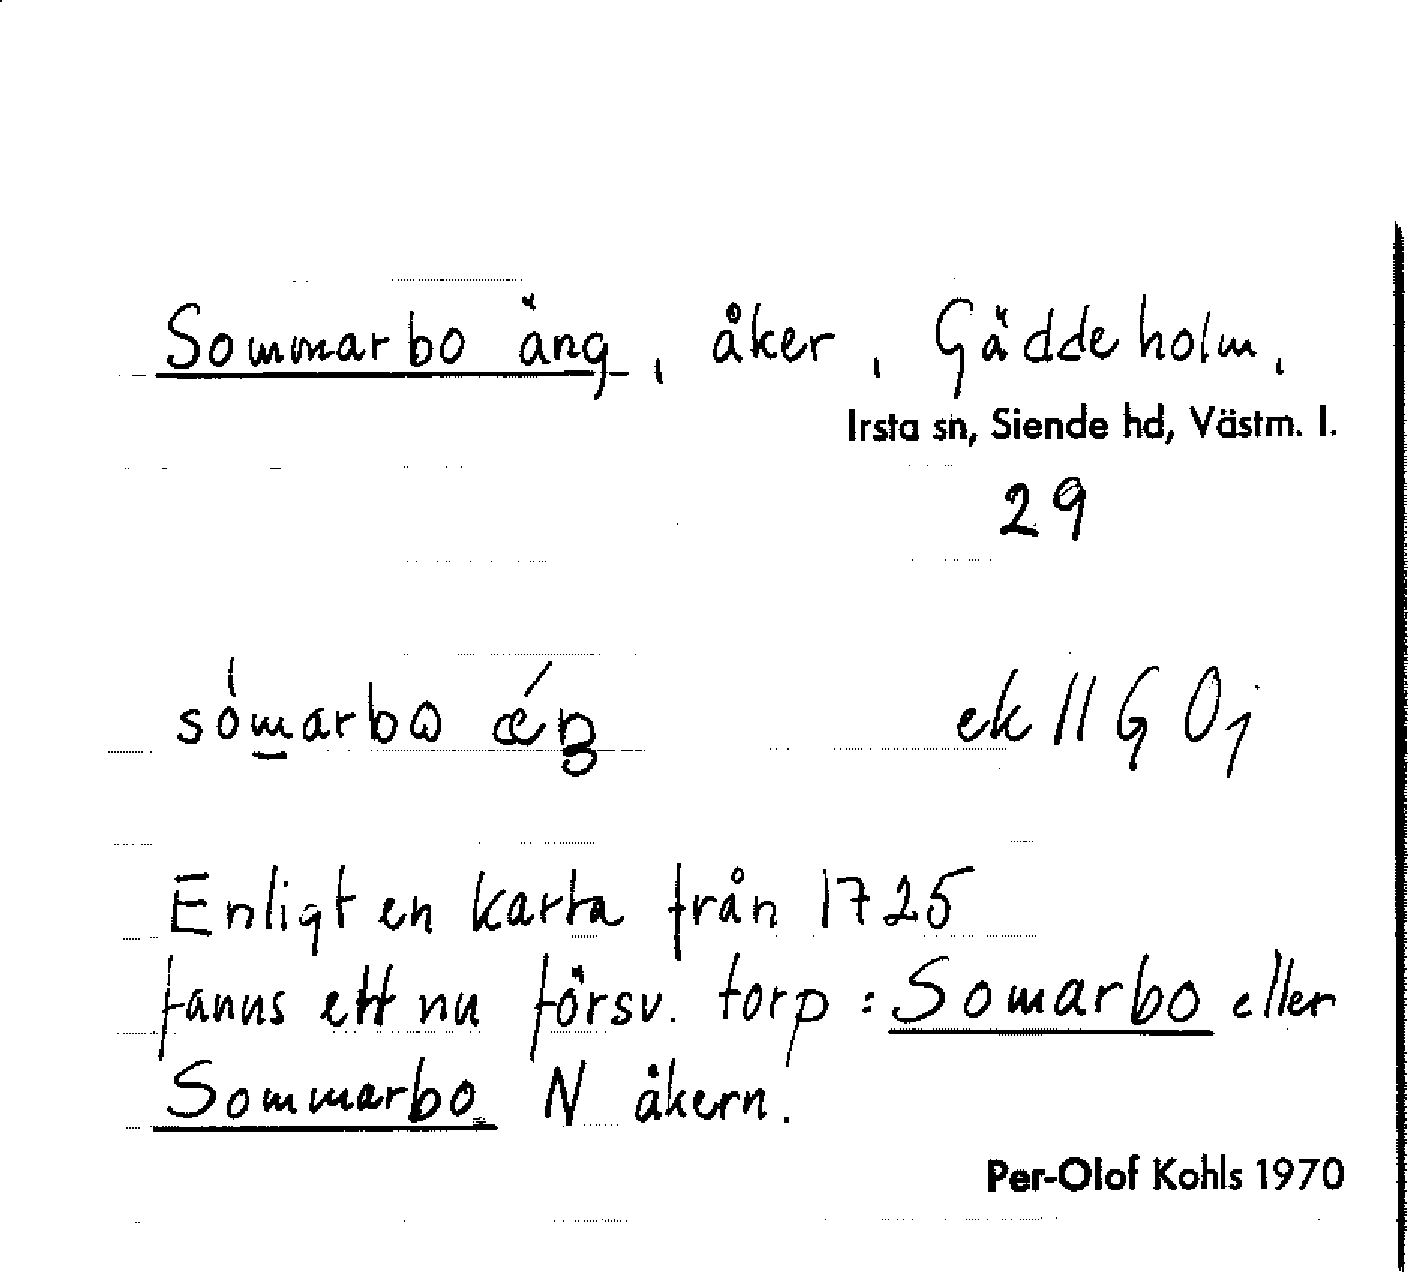 Sommarbo äng, åker, Gäddeholm,
Irsta sn, Siende hd, Västm. l.
29
ek 11G 0j
Enligt en karta från 1725
fanns ett nu försv. torp: Somarbo eller
Sommarbo N åkern.
Per-Olof Kohls 1970